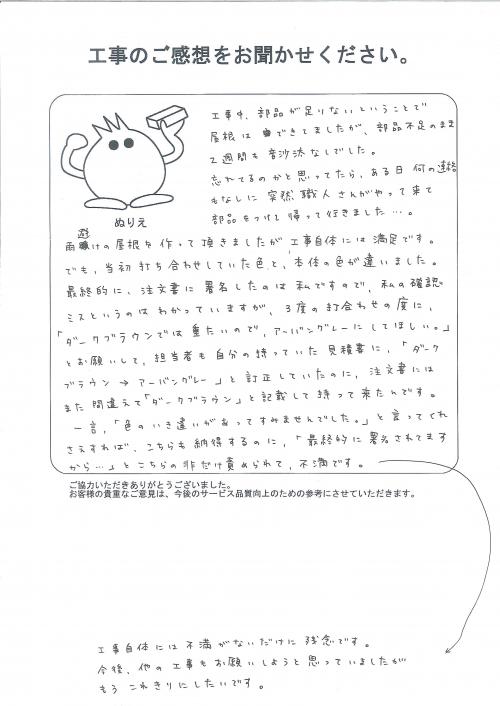 工事のご感想をお聞かせください。
工事中、部品が足りないということで
屋根はできてましたが、部品不足のまま
2週間も音沙汰なしでした。
忘れてるのかと思ってたら、ある日何の連絡
もなしに突然職人さんがやって来て
部品をつけて帰って行きました…。
ぬりえ
雨避けの屋根を作って頂きましたが工事自体には満足です。
でも、当初打ち合わせしていた色と、本体の色が違いました。
最終的に、注文書に署名したのは私ですので、私の確認
ミスというのはわかっていますが、3度の打合わせの度に、
「ダークブラウンでは重たいので、アーバングレーにしてほしい。」
とお願いして、担当者も自分の持っていた見積書に、「ダーク
ブラウン→アーバングレー」と訂正していたのに、注文書には
また間違えて「ダークブラウン」と記載して持って来たんです。
一言、「色のいき違いがあってすみませんでした。」と言ってくれ
さえすれば、こちらも納得するのに、「最終的に署名されてます
から…」とこちらの非だけ責められて、不満です。
ご協力いただきありがとうございました。
お客様の貴重なご意見は、今後のサービス品質向上のための参考にさせていただきます。
工事自体には不満がないだけに残念です。
今後、他の工事もお願いしようと思っていましたが
もうこれきりにしたいです。